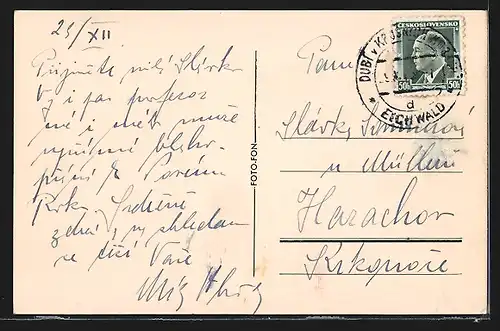 25/XII
Přijměte milá Slávko
Vy i pan profesor
mé i mého muže
upřímné blaho-
přání k Novému
Roku. Srdečně
zdraví, na shledanou
se těší Vaše
FOTO-FON
ČESKOSLOVENSKO
50h 50h
DUBÍ V KRUŠN
d
EICHWALD
Paní
Slávka
u Müllerů
Harachov
Krkonoše